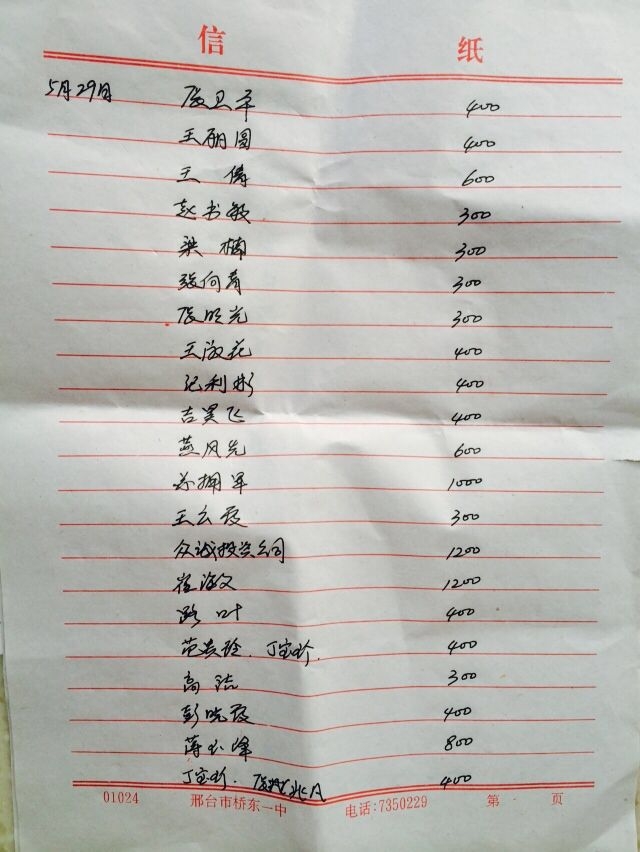 信 纸
5月29日 400
王丽圆 400
王 倩 600
赵书敏 300
梁 楠 300
张向青 300
300
王淑花 400
记利彬 400
吉昊飞 400
燕风先 600
苏拥军 1000
王云霞 300
众诚投资公司 1200
崔海文 1200
路 叶 400
范贵玲、丁宝珍. 400
高 洁 300
彭晓霞 400
蒋玉峰 800
丁宝珍. 400
01024 邢台市桥东一中 电话:7350229 第 页